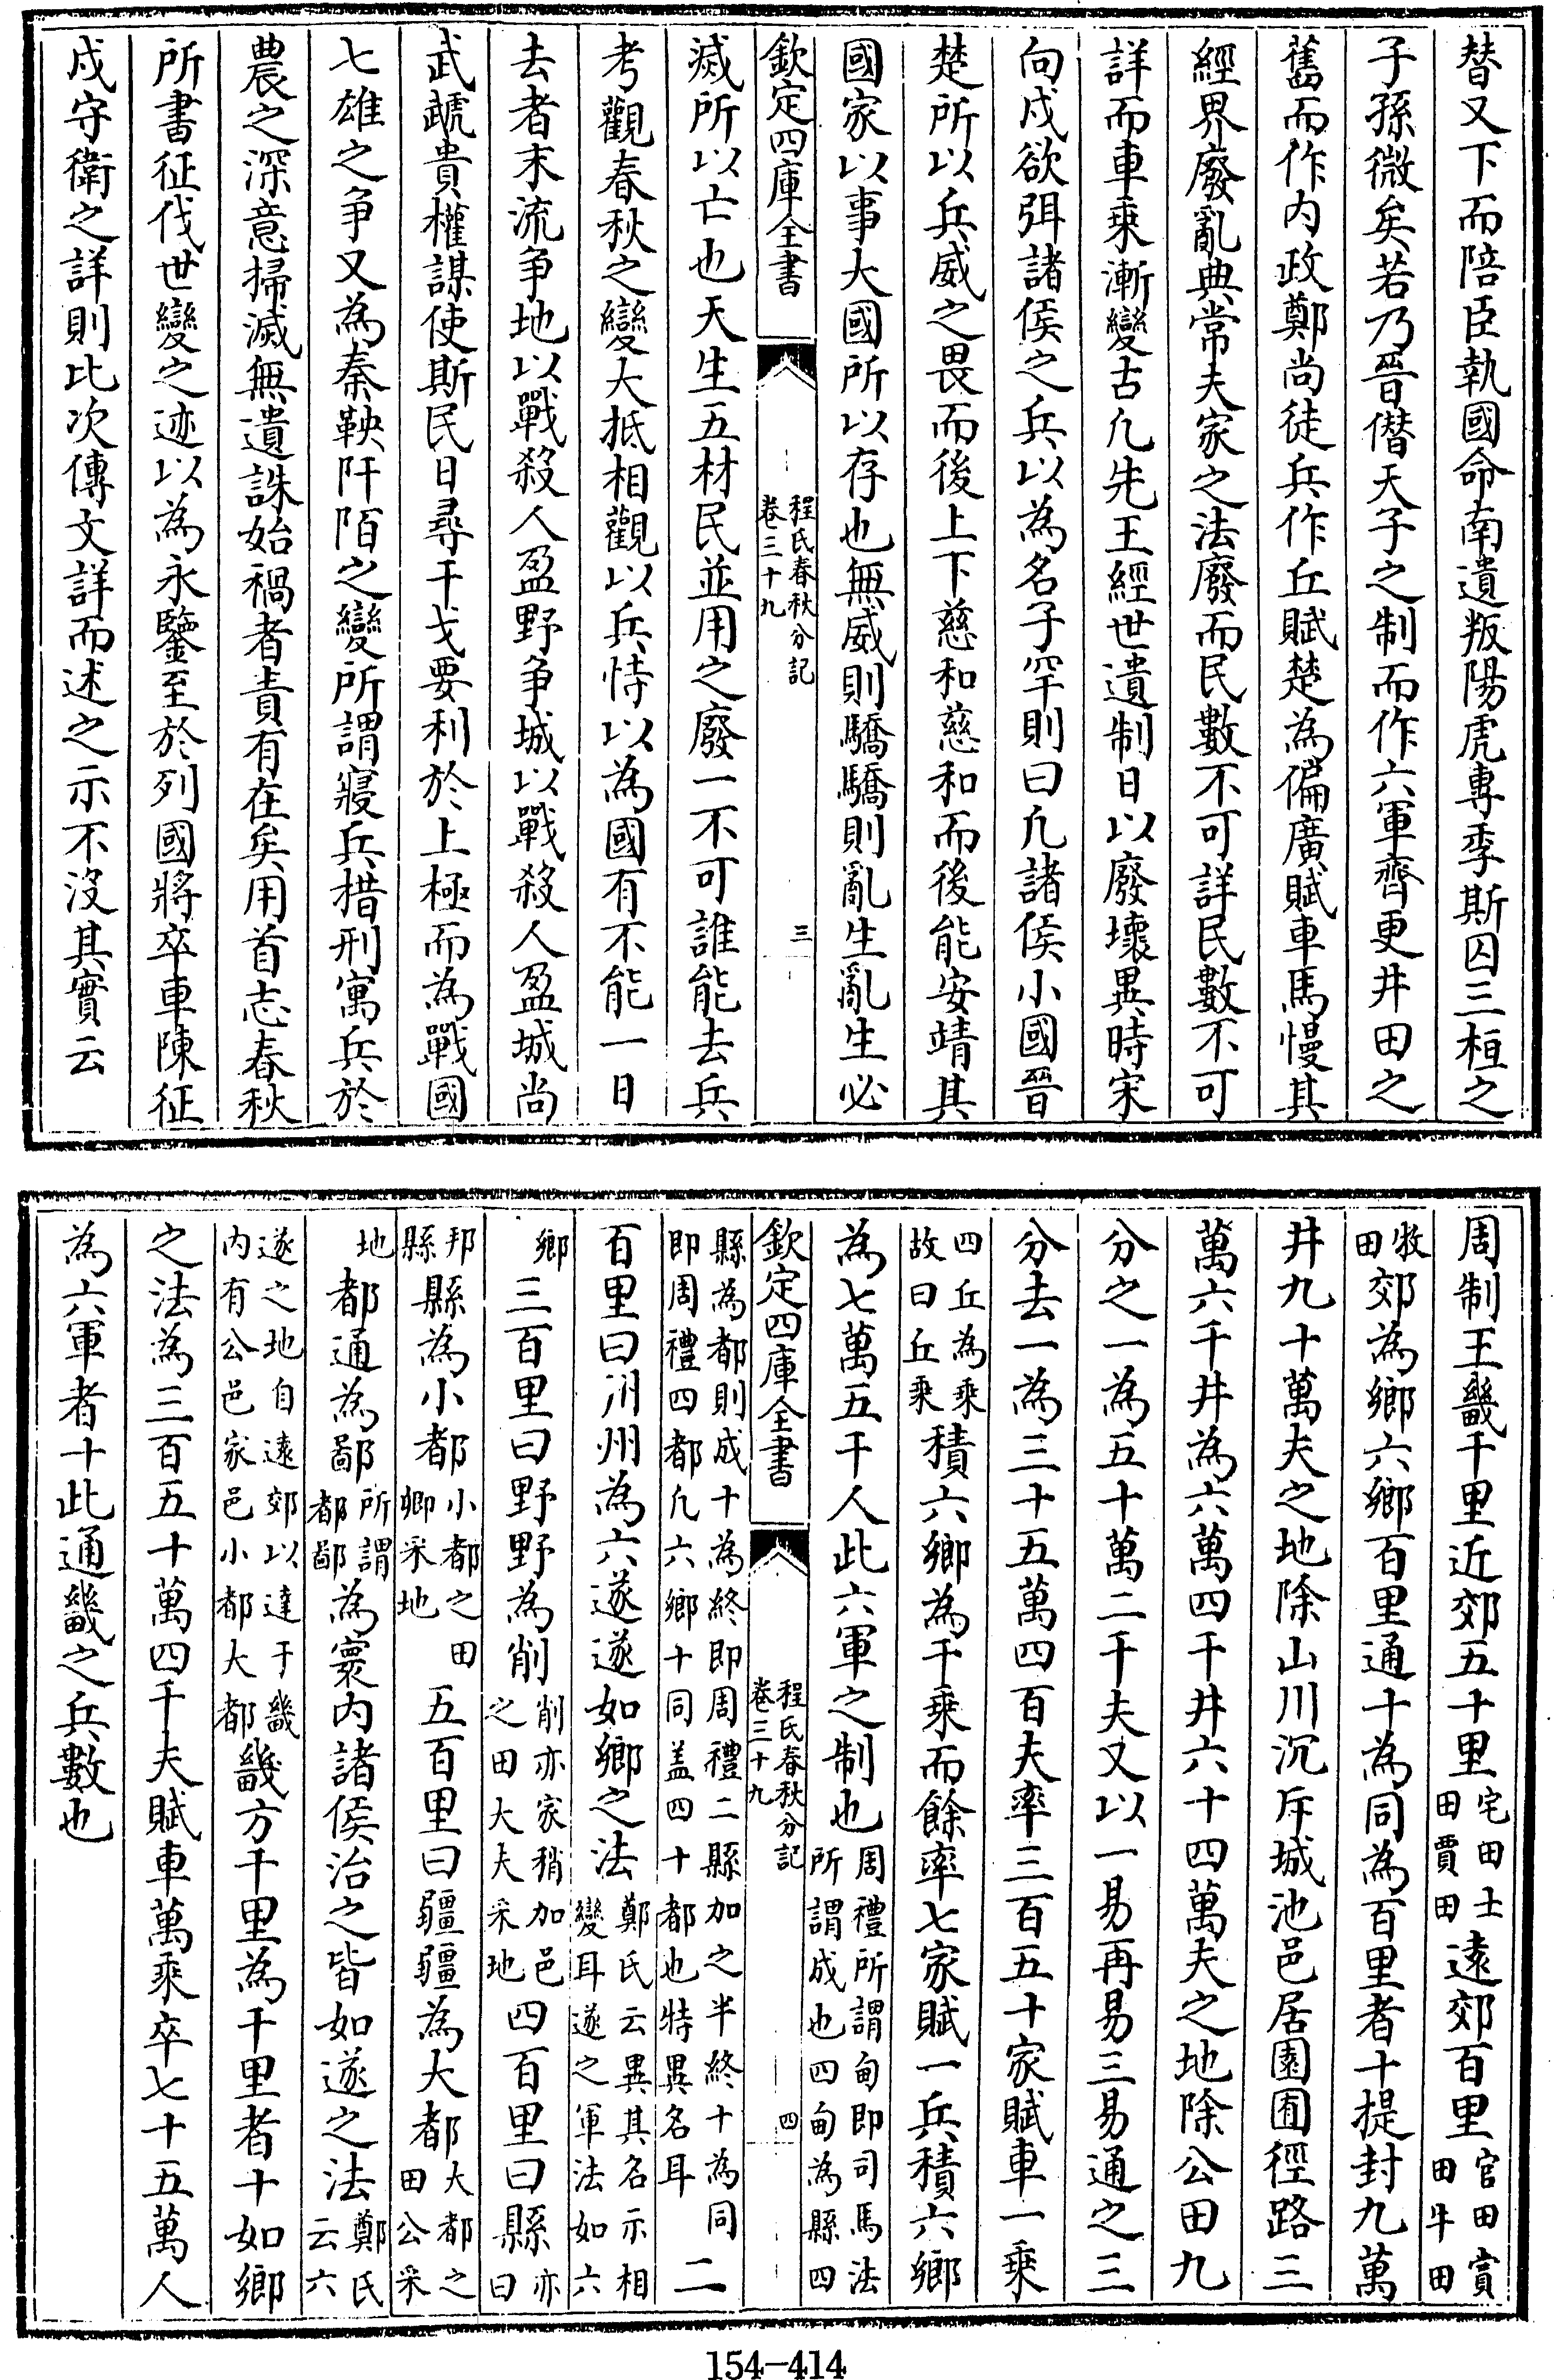 替又下而陪臣執國命南遺叛陽虎專季斯囚三桓之
子孫微矣若乃晉僭天子之制而作六軍齊更井田之
舊而作内政鄭尚徒兵作丘賦楚為偏廣賦車馬慢其
經界廢亂典常夫家之法廢而民數不可詳民數不可
詳而車乘漸變古凡先王經世遺制日以廢壞異時宋
向戌欲弭諸侯之兵以為名子罕則曰凡諸侯小國晉
楚所以兵威之畏而後上下慈和慈和而後能安靖其
國家以事大國所以存也無威則驕驕則亂生亂生必
欽定四庫全書
程氏春秋分記
卷三十九
三
滅所以亡也天生五材民並用之廢一不可誰能去兵
考觀春秋之變大抵相觀以兵恃以為國有不能一日
去者末流争地以戰殺人盈野争城以戰殺人盈城尚
武虣貴權謀使斯民日尋干戈要利於上極而為戰國
七雄之争又為秦鞅阡陌之變所謂寢兵措刑寓兵於
農之深意掃滅無遺誅始禍者責有在矣用首志春秋
所書征伐世變之迹以為永鑒至於列國將卒車陳征
戍守衛之詳則比次傳文詳而述之示不沒其實云
周制王畿千里近郊五十里宅田士田賈田遠郊百里官田賞田牛田
牧田郊為鄉六鄉百里通十為同為百里者十提封九萬
井九十萬夫之地除山川沉斥城池邑居園囿徑路三
萬六千井為六萬四千井六十四萬夫之地除公田九
分之一為五十萬二千夫又以一易再易三易通之三
分去一為三十五萬四百夫率三百五十家賦車一乘
四丘為乘故曰丘乘積六鄉為千乘而餘率七家賦一兵積六鄉
為七萬五千人此六軍之制也周禮所謂甸即司馬法所謂成也四甸為縣四
欽定四庫全書
程氏春秋分記
卷三十九
四
縣為都則成十為終即周禮二縣加之半終十為同即周禮四都凡六鄉十同盖四十都也特異名耳二
百里曰州州為六遂遂如鄉之法鄭氏云異其名示相變耳遂之軍法如六
鄉三百里曰野野為削削亦家稍加邑之田大夫采地四百里曰縣亦曰
邦縣縣為小都小都之田卿采地五百里曰疆疆為大都大都之田公采
地都通為鄙所謂都鄙為寰内諸侯治之皆如遂之法鄭氏云六
遂之地自遠郊以達于畿内有公邑家邑小都大都畿方千里為千里者十如鄉
之法為三百五十萬四千夫賦車萬乘卒七十五萬人
為六軍者十此通畿之兵數也
154-414